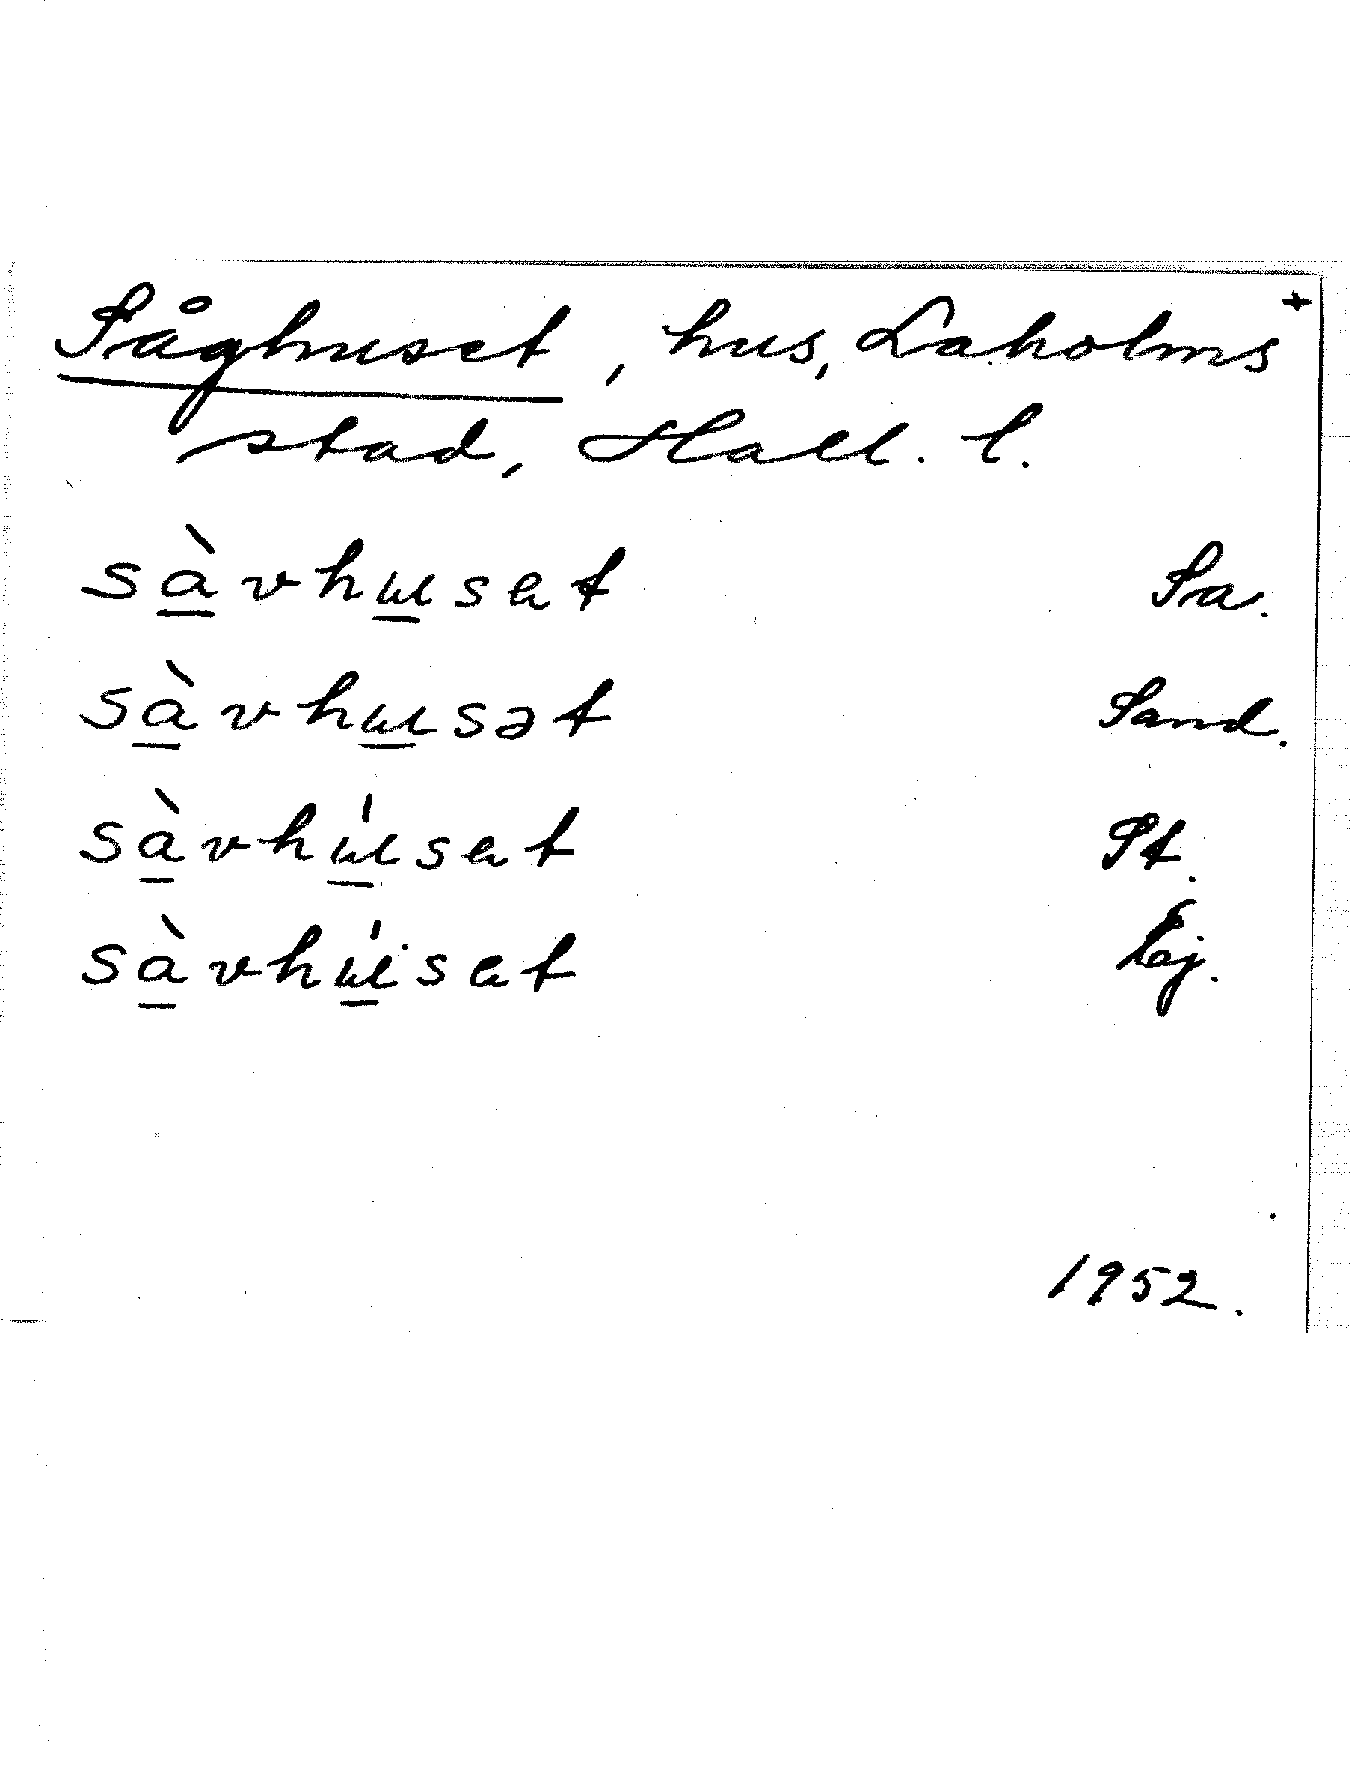 Såghuset, hus, Laholms +
stad, Hall. l.
sàvhɯsɐt Sa.
sàvhɯsət Sand.
sàvhɯ́sɐt St.
sàvhɯ́sɐt
1952.